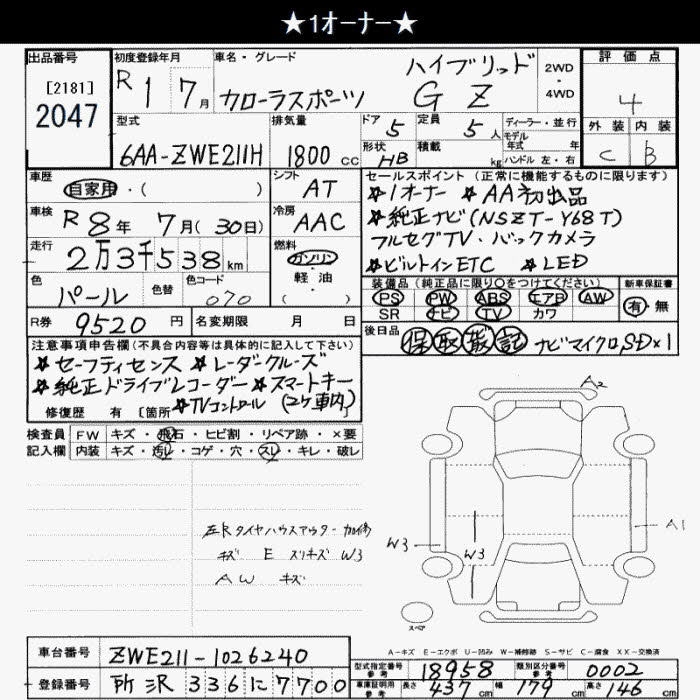 ★1オーナー★
出品番号
[2181]
2047
初度登録年月
R 1 7月
車名・グレード
ハイブリッド
カローラスポーツ G Z
2WD
・
4WD
評価点
4
外装 内装
C B
型式
6AA-ZWE211H
排気量
1800 cc
ドア 5
定員 5人
形状 HB
積載 kg
ディーラー・並行
モデル年式 年
ハンドル 左・右
車歴
自家用・( )
シフト
AT
車検
R 8年 7月(30日)
冷房
AAC
走行
2万3千538km
燃料
ガソリン
・
軽油
( )
色
パール
色替
色コード
070
R券 9520円
名変期限 月 日
セールスポイント(正常に機能するものに限ります)
☆1オーナー ☆AA初出品
☆純正ナビ(NSZT-Y68T)
フルセグTV・バックカメラ
☆ビルトインETC ☆LED
装備品(純正品に限り○をつけてください)
PS PW ABS エアB AW
SR ナビ TV カワ
新車保証書
有・無
後日品
保 取 記 ナビマイクロSD×1
注意事項申告欄(不具合内容等は具体的に記入して下さい)
☆セーフティセンス ☆レーダークルーズ
☆純正ドライブレコーダー ☆スマートキー
☆TVコントロール (2ケ車内)
修復歴 有 [箇所
検査員
記入欄
FW キズ・飛石・ヒビ割・リペア跡・×要
内装 キズ・汚レ・コゲ・穴・スレ・キレ・破レ
左Rタイヤハウスアウター加修
キズ E スリキズ W3
AW キズ
A2
W3
W3
A1
スペア
A-キズ E-エクボ U-凹み W-補修跡 S-サビ C-腐食 XX-交換済
車台番号 ZWE211-1026240
登録番号 所沢 336に7700
型式指定番号 参考 18958
類別区分番号 参考 0002
車庫証明用 参考 長さ 437cm 幅 179cm 高さ 146cm